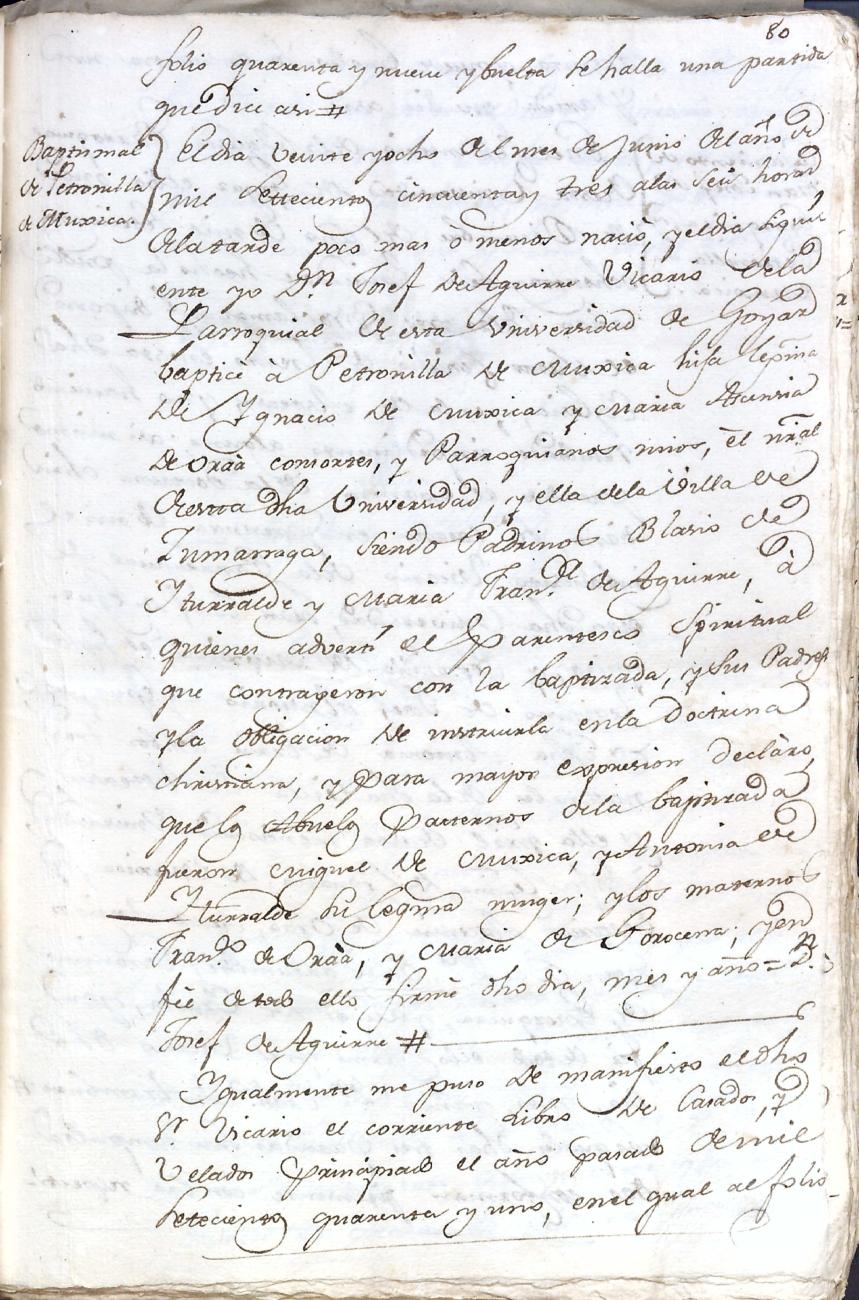 80
folio quarenta y nueve y buelta se halla una partida
que dice asi #
Baptismal
de Petronilla
de Muxica.
El dia veinte y ocho del mes de Junio del año de
mil setteciento cincuenta y tres a las seis horas
de la tarde poco mas ô menos naciò, y el dia sigui
ente yo Dn. Josef de Aguirre Vicario de la
Parroquial de esta Universidad de Goyaz
baptice à Petronilla de Muxica hija legma
de Ygnacio de Muxica y Maria Ascensia
de Oraà consortes, y Parroquianos mios, êl nral
de estta dha Universidad, y ella de la Villa de
Zumarraga, siendo Padrinos Blasio de
Yturralde y Maria Franca. de Aguirre, à
quienes advertì el parentesco Spiritual
que contrageron con la baptizada, y sus Padres
y la obligacion de instruirla en la Doctrina
christiana, y para mayor expresion declaro,
que los Abuelos Paternos de la baptizada
fueron Miguel de Muxica, y Antonia de
Yturralde su legma muger; y los maternos
Franco. de Oraà, y Maria de Gorocena; y en
feè de todo ello firmè dho dia, mes y año = Dn.
Josef de Aguirre #
Ygualmente me puso de manifiesto el dho
Sr. Vicario el corriente Libro de Casados, y
Velados principiado el año pasado de mil
setecientos quarenta y uno, en el qual al folio